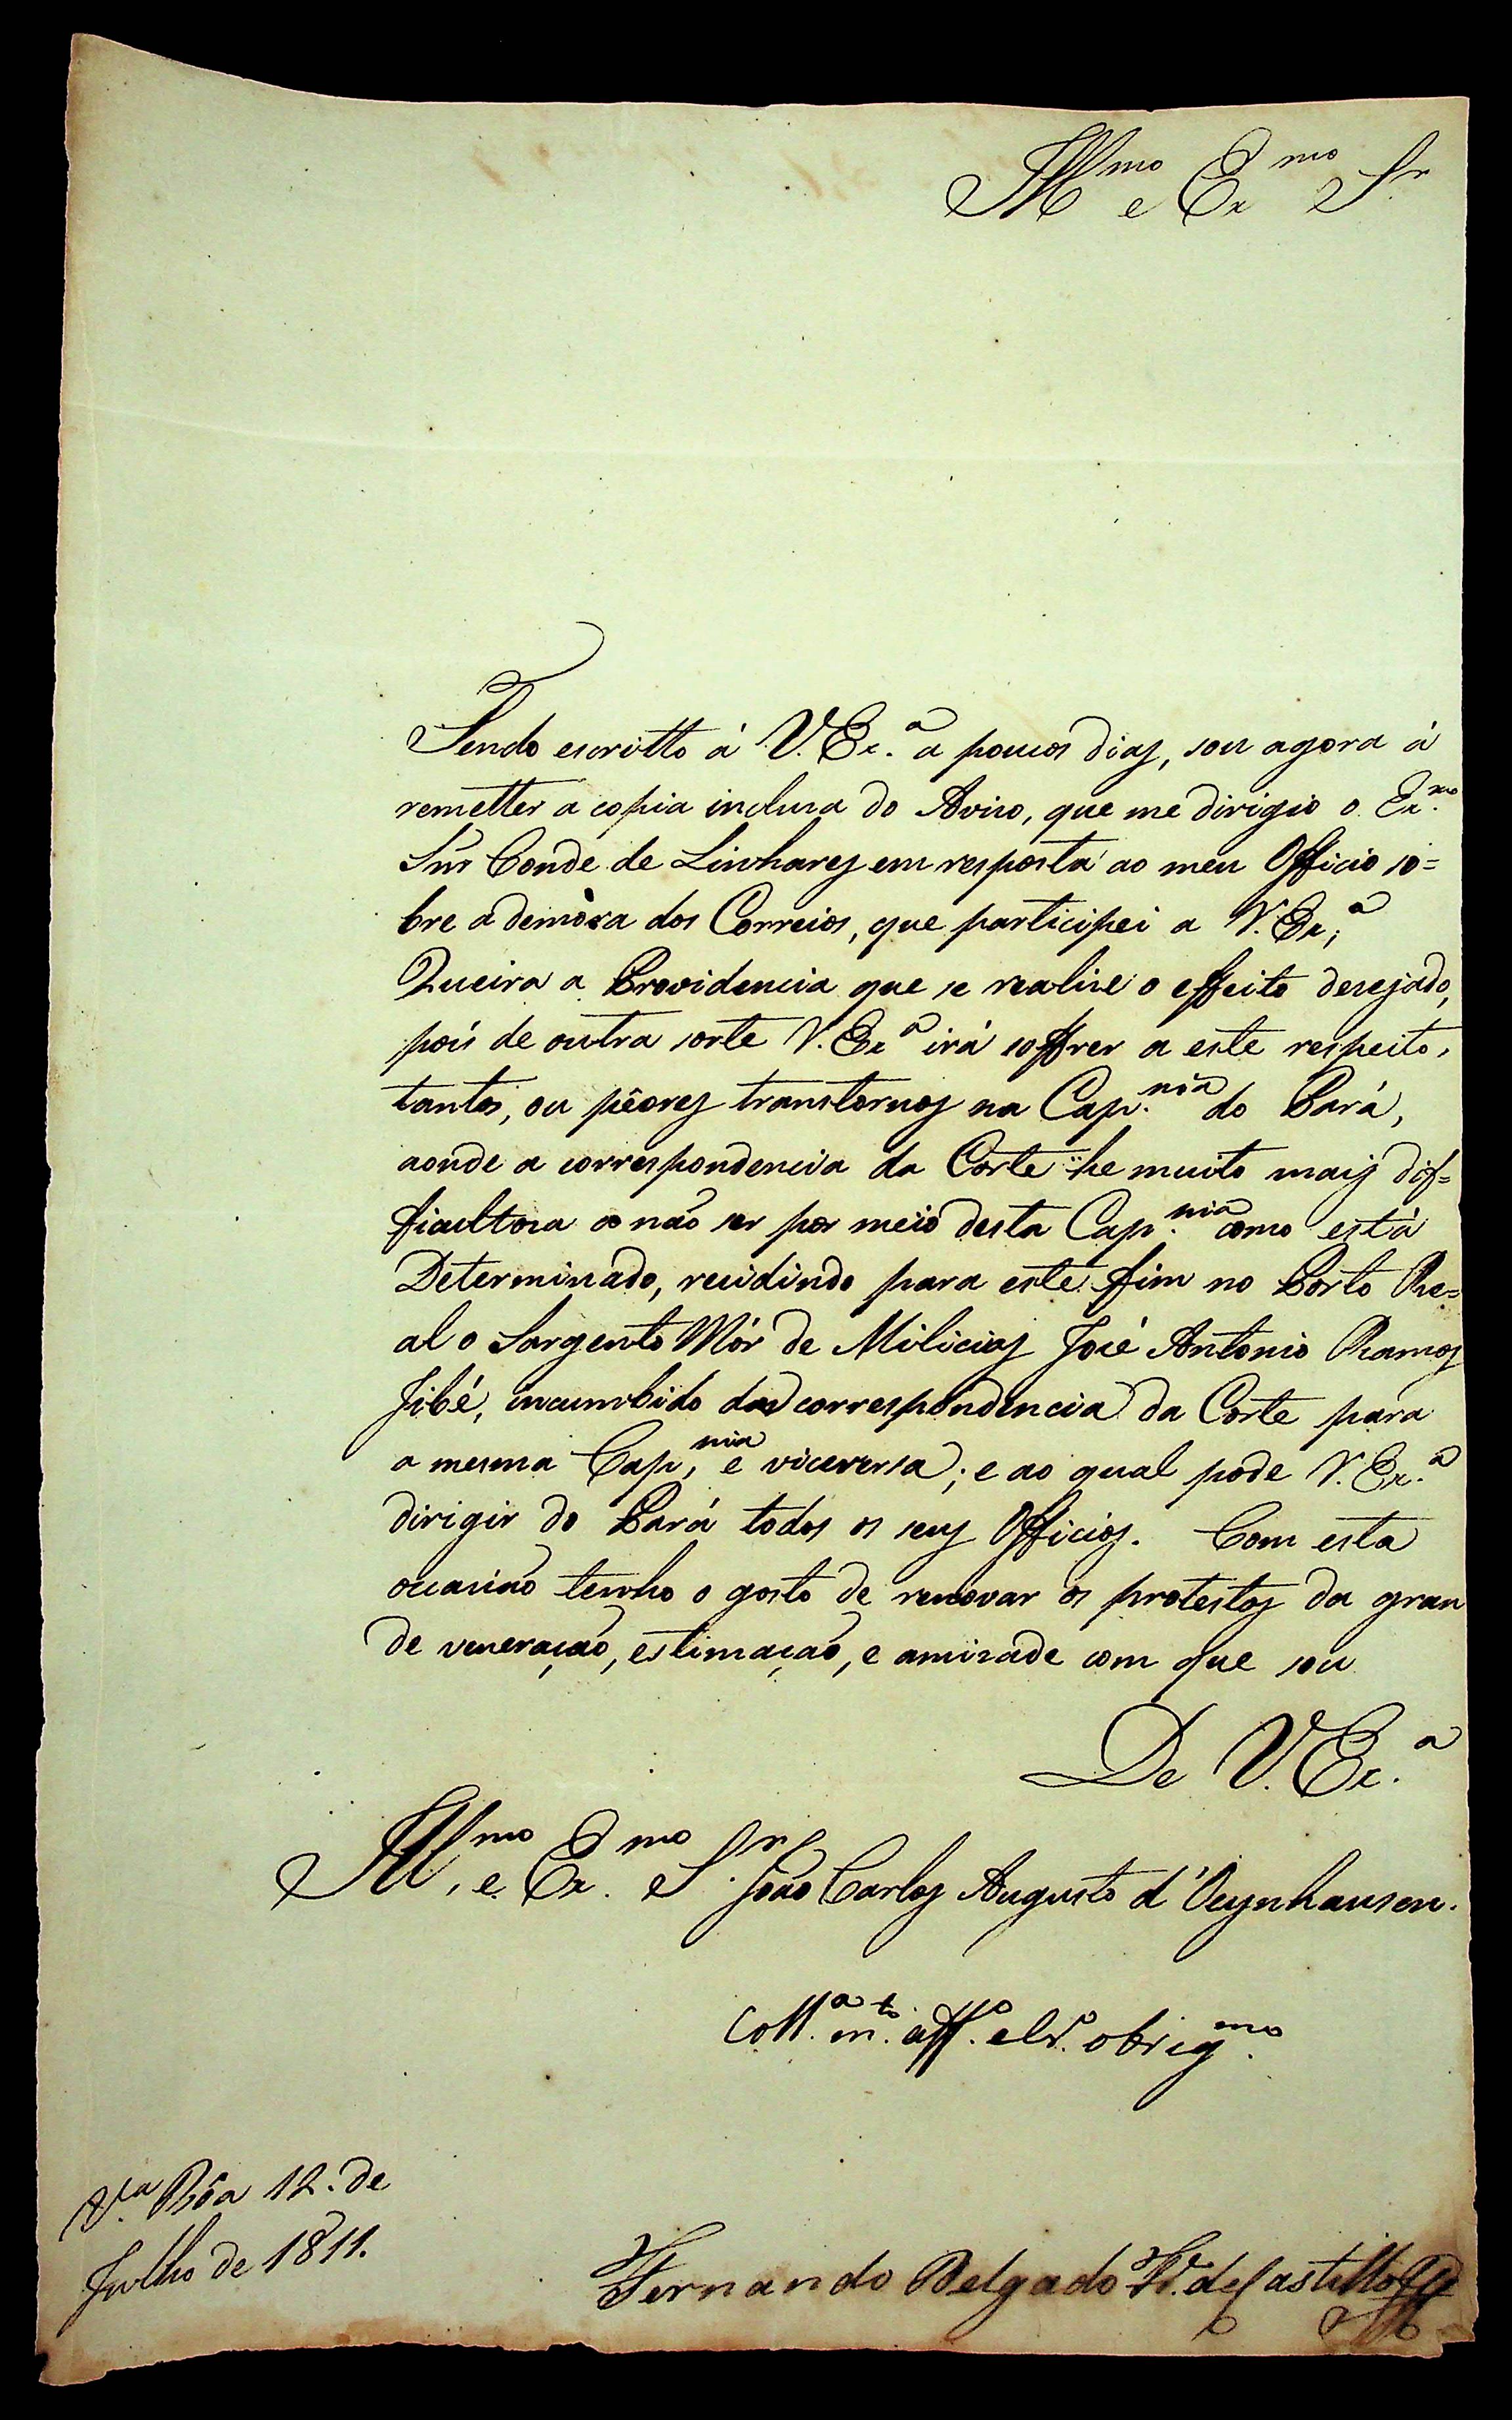 Ill.mo e Ex.mo Sr.
Tendo escritto á V. Ex.a a poucos dias, sou agora á
remetter a copia inclusa do Aviso, que me dirigio o Ex.mo
Snr Conde de Linhares em resposta ao meu Officio so=
bre a demòra dos Correios, que participei a V. Ex.a;
Queira a Providencia que se realise o effeito desejado,
pois de outra sorte V. Ex.a irá soffrer a este respeito,
tantos, ou pêores transtornos na Cap.nia do Pará,
aonde a correspondencia da Corte he muito mais dif=
ficultosa a não ser por meio desta Cap.nia como está
Determinado, residindo para este fim no Porto Re=
al o Sargento Mór de Milicias José Antonio Ramos
Jibé, incumbido da correspondencia da Corte para
a mesma Cap.nia, e viceversa; e ao qual pode V. Ex.a
dirigir do Pará todos os seus Officios. Com esta
occasião tenho o gosto de renovar os protestos da gran
de veneração, estimação, e amizade com que sou
De V. Ex.a
Ill.mo e Ex.mo Sr. João Carlos Augusto d'Oeynhausen.
m.to aff.o e obrig.mo
V.a Bôa 12. de
Julho de 1811.
Fernando Delgado Fr. de Castilho